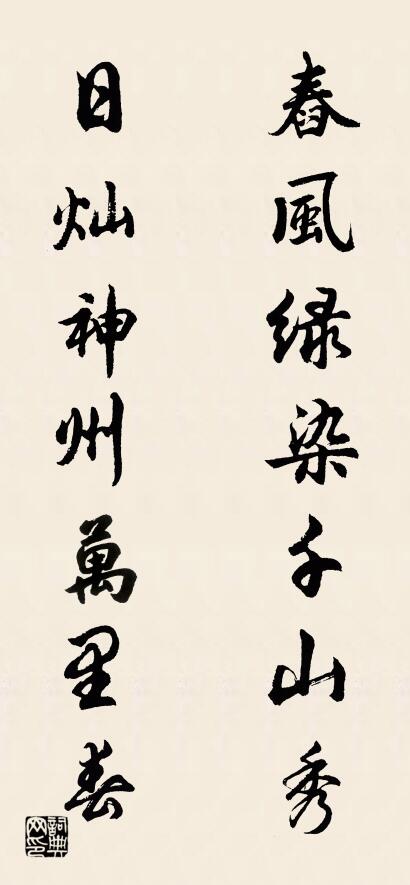 舂風绿染千山秀
日灿神州萬里春
詞典
网印